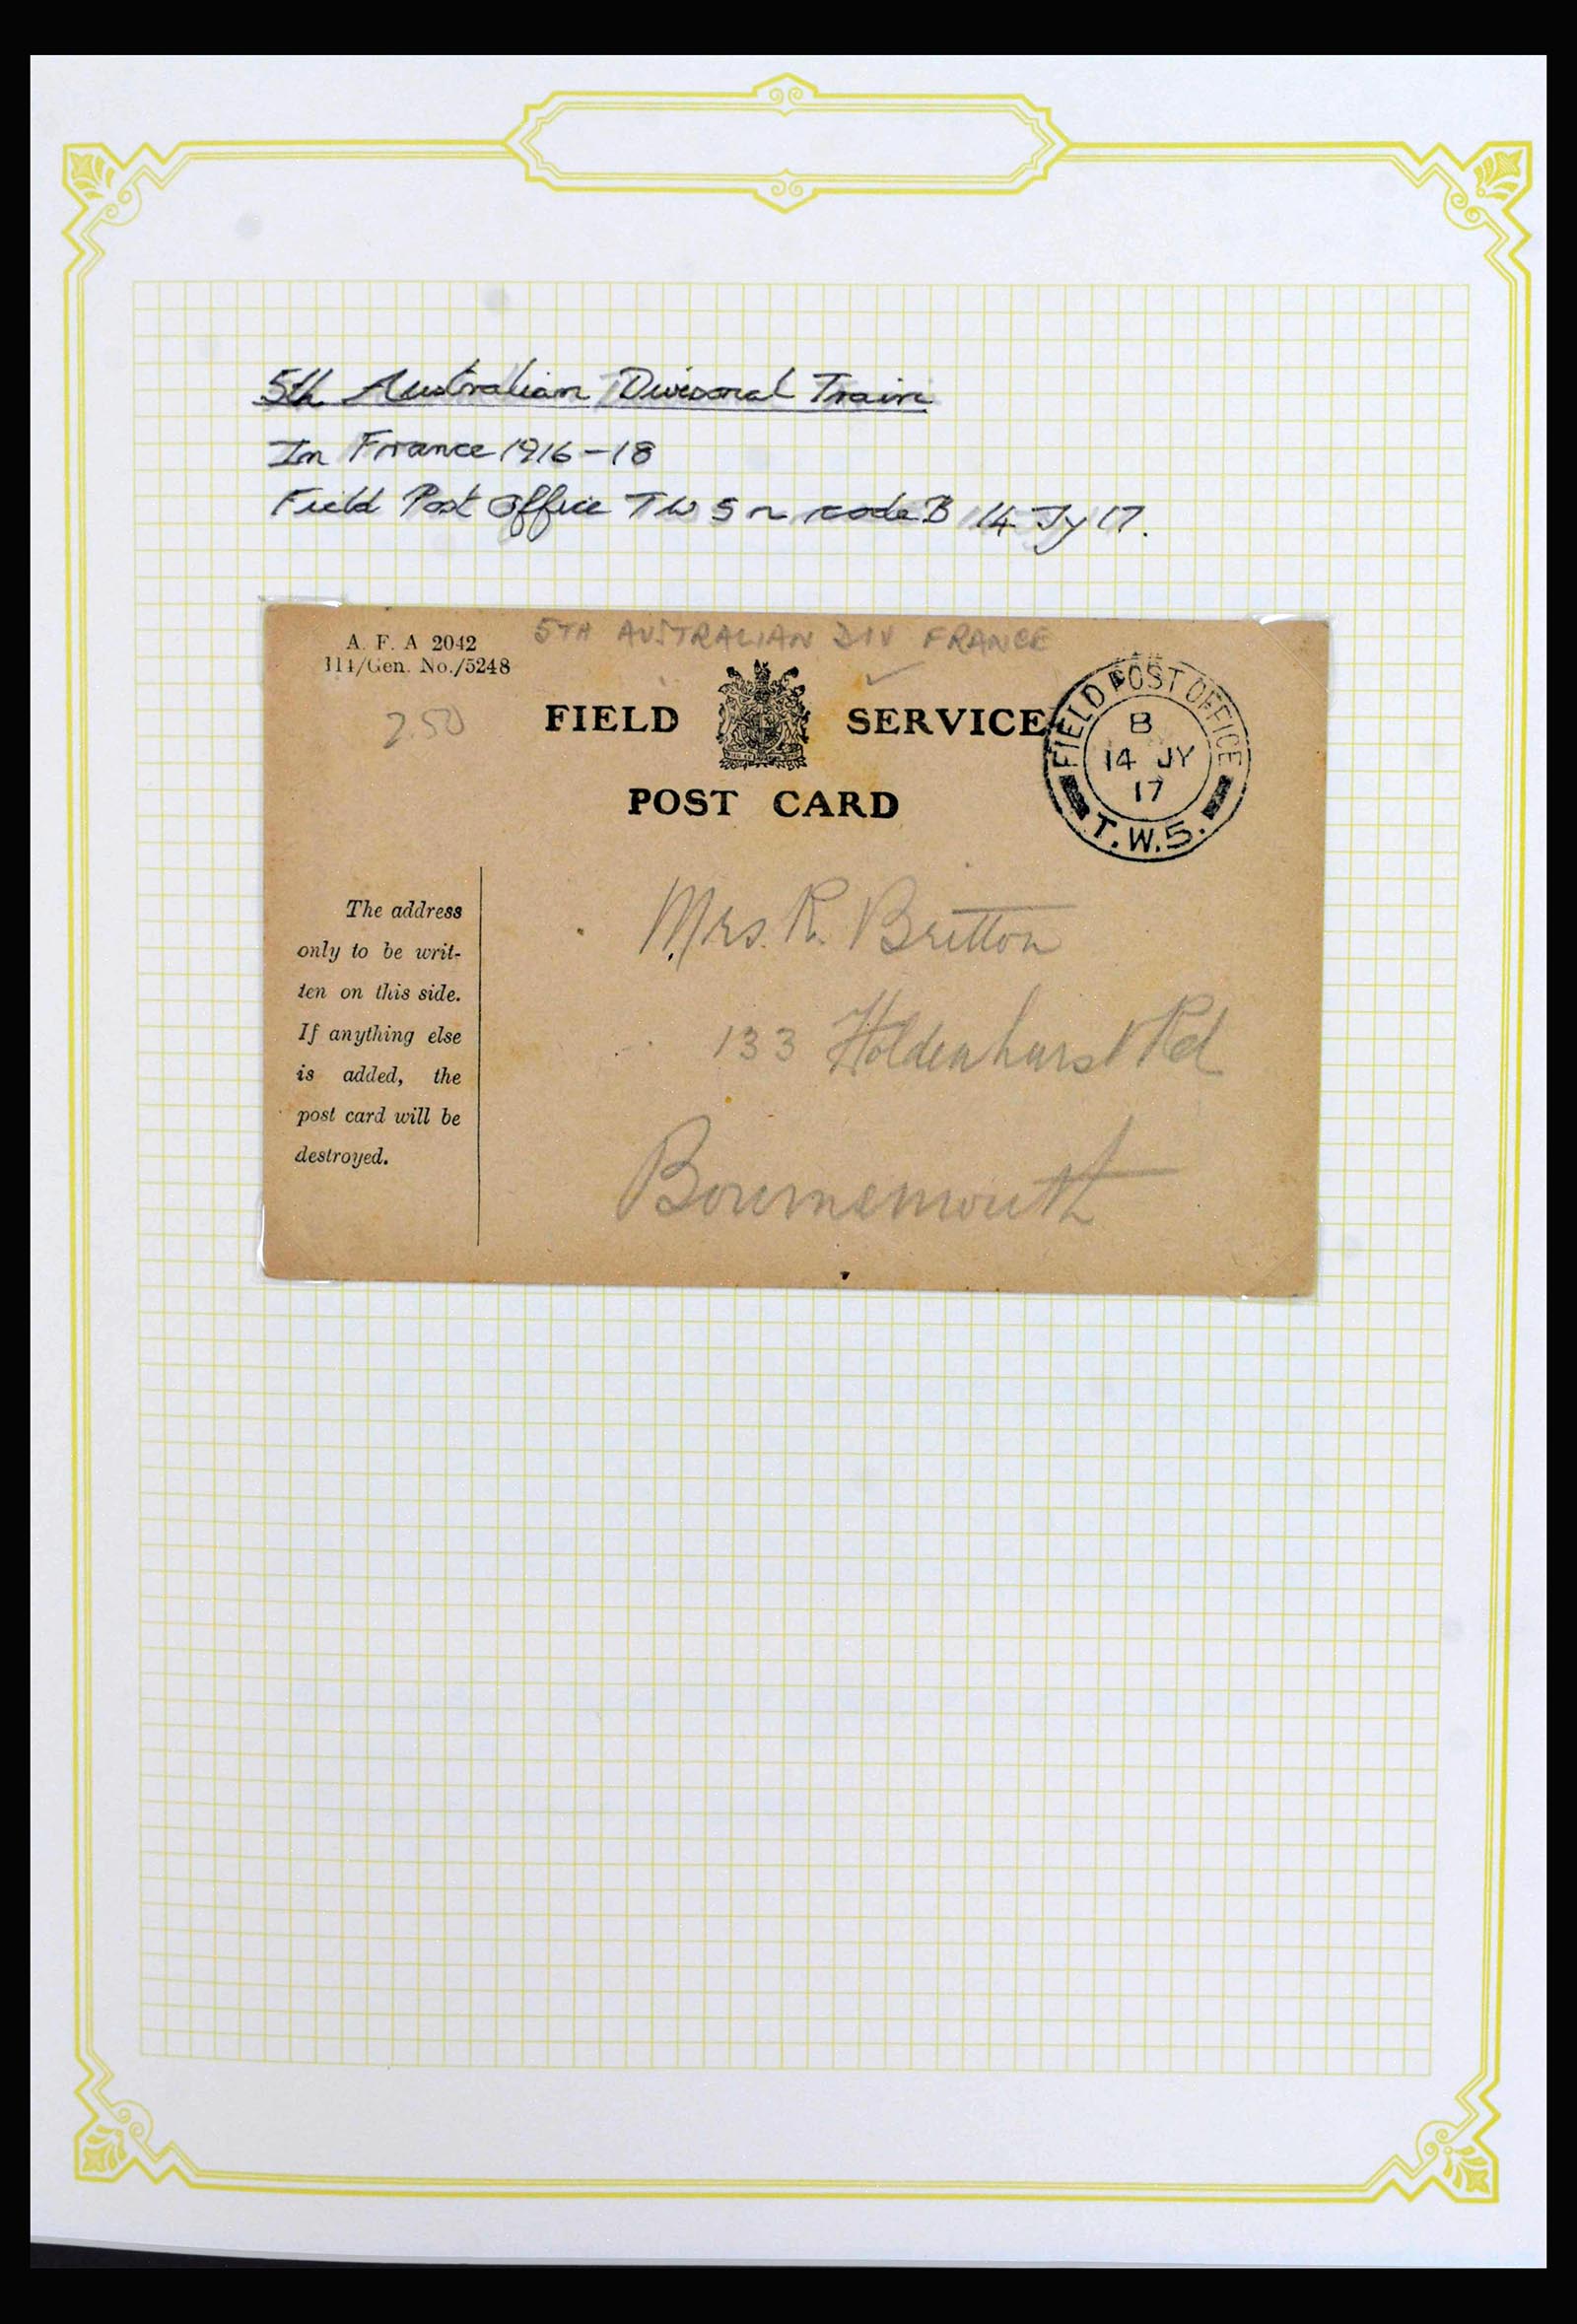 5th Australian Divisonal Train
In France 1916-18
Field Post Office TW 5 ~ code B 14 Jy 17.
A. F. A 2042
114/Gen. No./5248
5TH AUSTRALIAN DIV FRANCE
2.50
FIELD SERVICE
POST CARD
FIELD POST OFFICE
B
14 JY
17
T.W.5.
The address
only to be writ-
ten on this side.
If anything else
is added, the
post card will be
destroyed.
Mrs. R. Britton
133 Holdenhurst Rd
Bournemouth